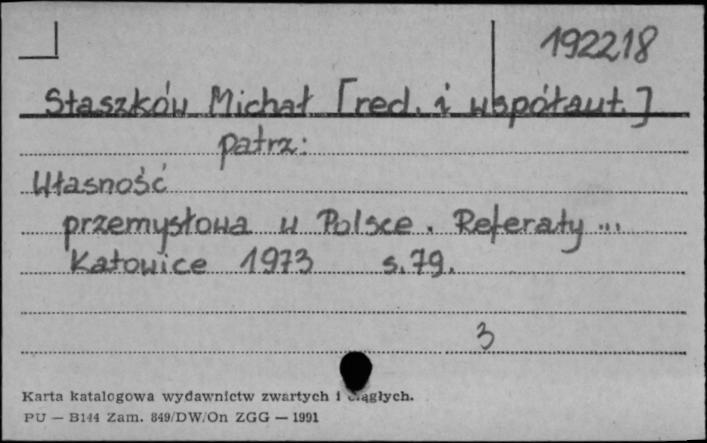 192218
Staszków Michał [red. i współaut.]
patrz:
Własność
przemysłowa w Polsce. Referaty...
Katowice 1973 s.79.
3
Karta katalogowa wydawnictw zwartych i ciągłych.
PU — B144 Zam. 849/DW/On ZGG — 1991